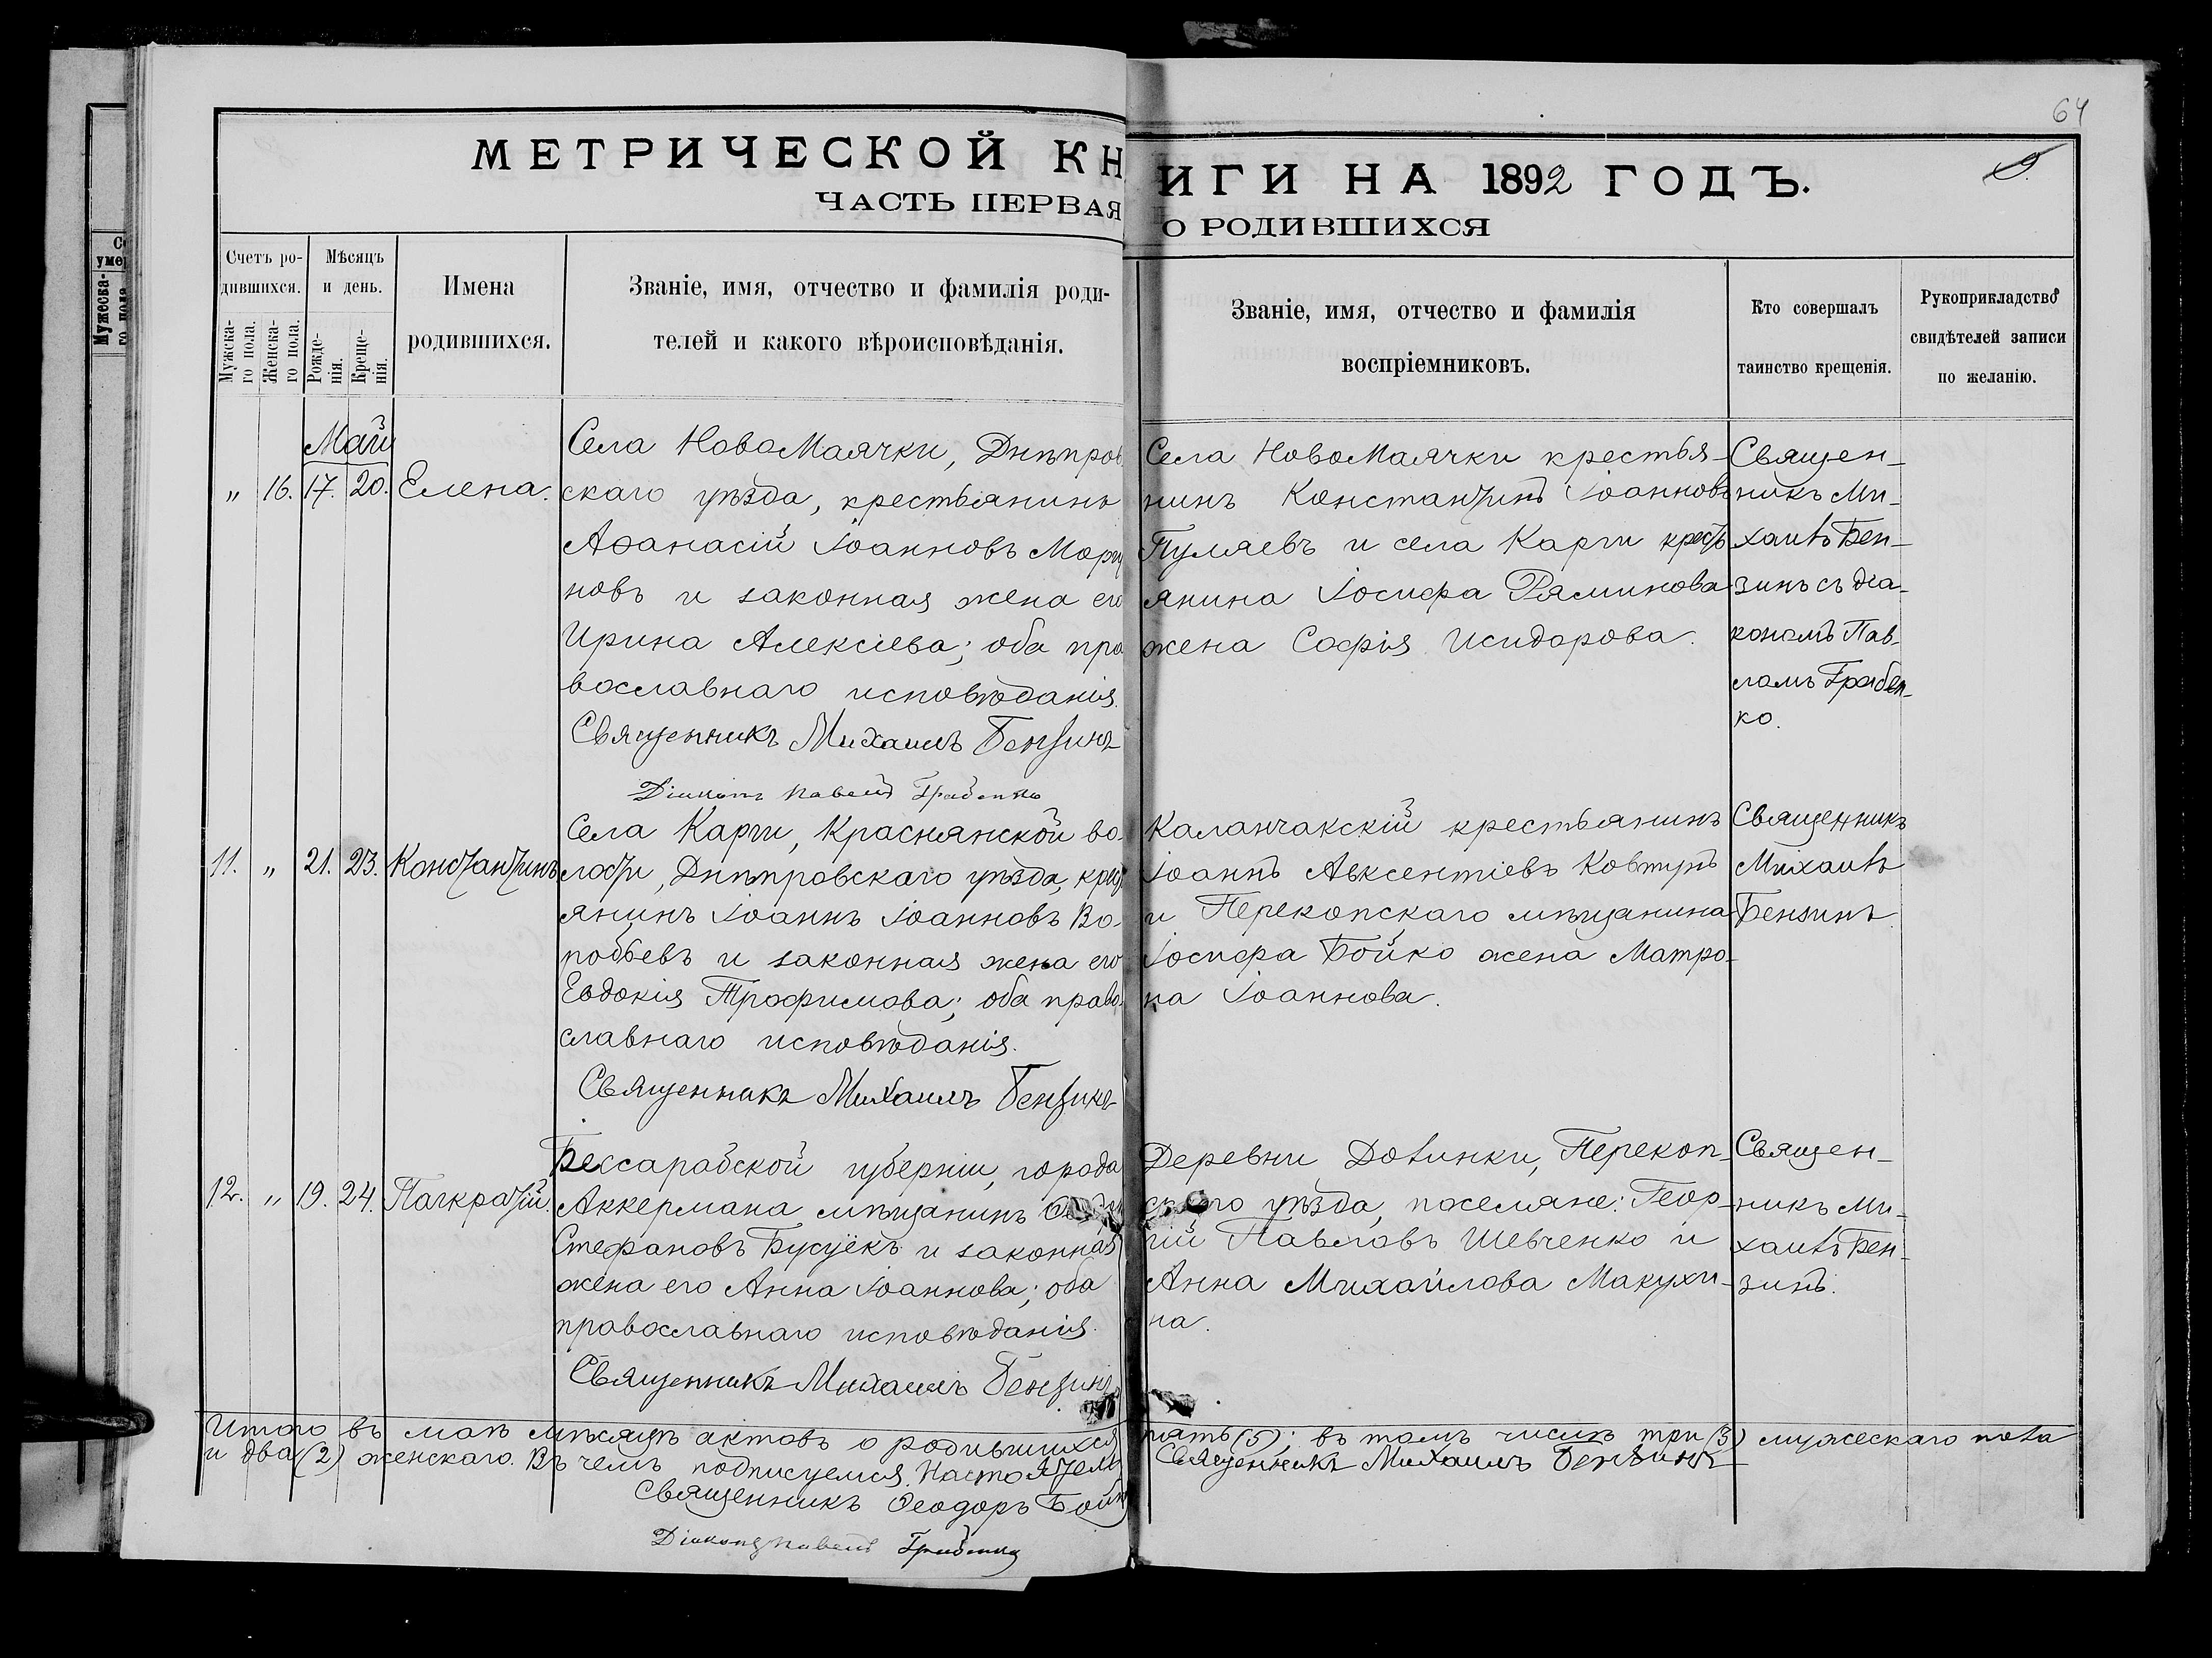 64
МЕТРИЧЕСКОЙ КНИГИ НА 1892 ГОДЪ.
9.
ЧАСТЬ ПЕРВАЯ О РОДИВШИХСЯ
Счетъ ро-
дившихся.
Мужска-
го пола.
Женска-
го пола.
Мѣсяцъ
и день.
Рожде-
нія.
Креще-
нія.
Имена
родившихся.
Званіе, имя, отчество и фамилія роди-
телей и какого вѣроисповѣданія.
Званіе, имя, отчество и фамилія
воспріемниковъ.
Кто совершалъ
таинство крещенія.
Рукоприкладство
свидѣтелей записи
по желанію.
Май
" 16. 17. 20. Елена.
Села НовоМаячки, Днѣпров
скаго уѣзда, крестьянинъ
Аѳанасій Іоанновъ
новъ и законная жена его
Ирина Алексіева; оба пра
вославнаго исповѣданія.
Священникъ Михаилъ Бензинъ
Діаконъ Павелъ Грабенко
Села НовоМаячки крестья-
нинъ Константинъ Іоанновъ
Пуляевъ и села Карги крест
янина Іосифа Ряминова
жена Софія Исидорова.
Священ-
никъ Ми-
хаилъ Бен-
зинъ съ діа-
кономъ Пав-
ломъ Грабен-
ко.
11. " 21. 23. Константинъ
Села Карги, Краснянской во-
лости, Днѣпровскаго уѣзда, крест
янинъ Іоаннъ Іоанновъ Во-
робьевъ и законная жена его
Евдокія Трофимова; оба право-
славнаго исповѣданія.
Священникъ Михаилъ Бензинъ
Каланчакскій крестьянинъ
Іоаннъ Авксентіевъ Ковтунъ
и Перекопскаго мѣщанина
Іосифа Бойко жена Матро-
на Іоаннова.
Священникъ
Михаилъ
Бензинъ
12. " 19. 24. Панкратій.
Бессарабской губерніи, города
Аккермана мѣщанинъ
Стефановъ Бусуёкъ и законная
жена его Анна Іоаннова; оба
православнаго исповѣданія.
Священникъ Михаилъ Бензинъ
Деревни Долинки, Перекоп-
скаго уѣзда, поселяне: Геор-
гій Павловъ Шевченко и
Анна Михайлова Макухи-
на.
Священ-
никъ Ми-
хаилъ Бен-
зинъ.
Итого въ маѣ мѣсяцѣ актовъ о родившихся пять (5); въ томъ числѣ три (3) мужескаго пола
и два (2) женскаго. Въ чемъ подписуемся. Настоятель
Священникъ Ѳеодоръ Бойко
Священникъ Михаилъ Бензинъ
Діаконъ Павелъ Грабенко
Мужеска-
го пола